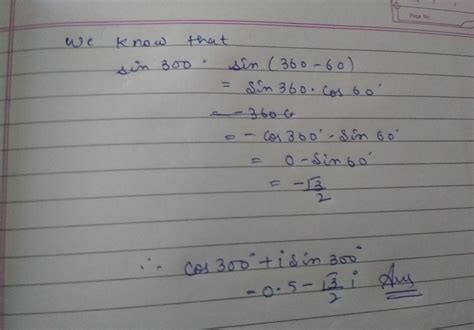 Page No.
we know that
sin 300° sin (360-60)
= sin 360. cos 60°
= -cos 360° - sin 60°
= 0 - sin 60°
= -√3/2
∴ cos 300° + i sin 300°
= 0.5 - √3/2 i Ans